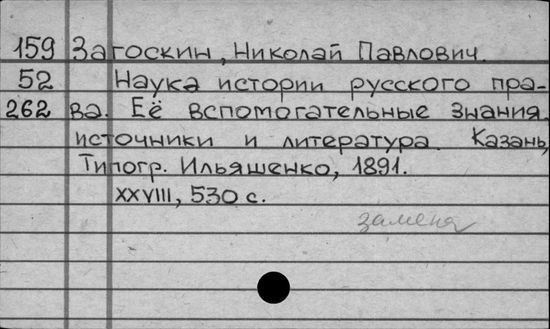 159 Загоскин, Николай Павлович.
52 Наука истории русского пра-
262 ва. Её вспомогательные знания,
источники и литература. Казань,
Типогр. Ильяшенко, 1891.
XXVIII, 530 с.
замена